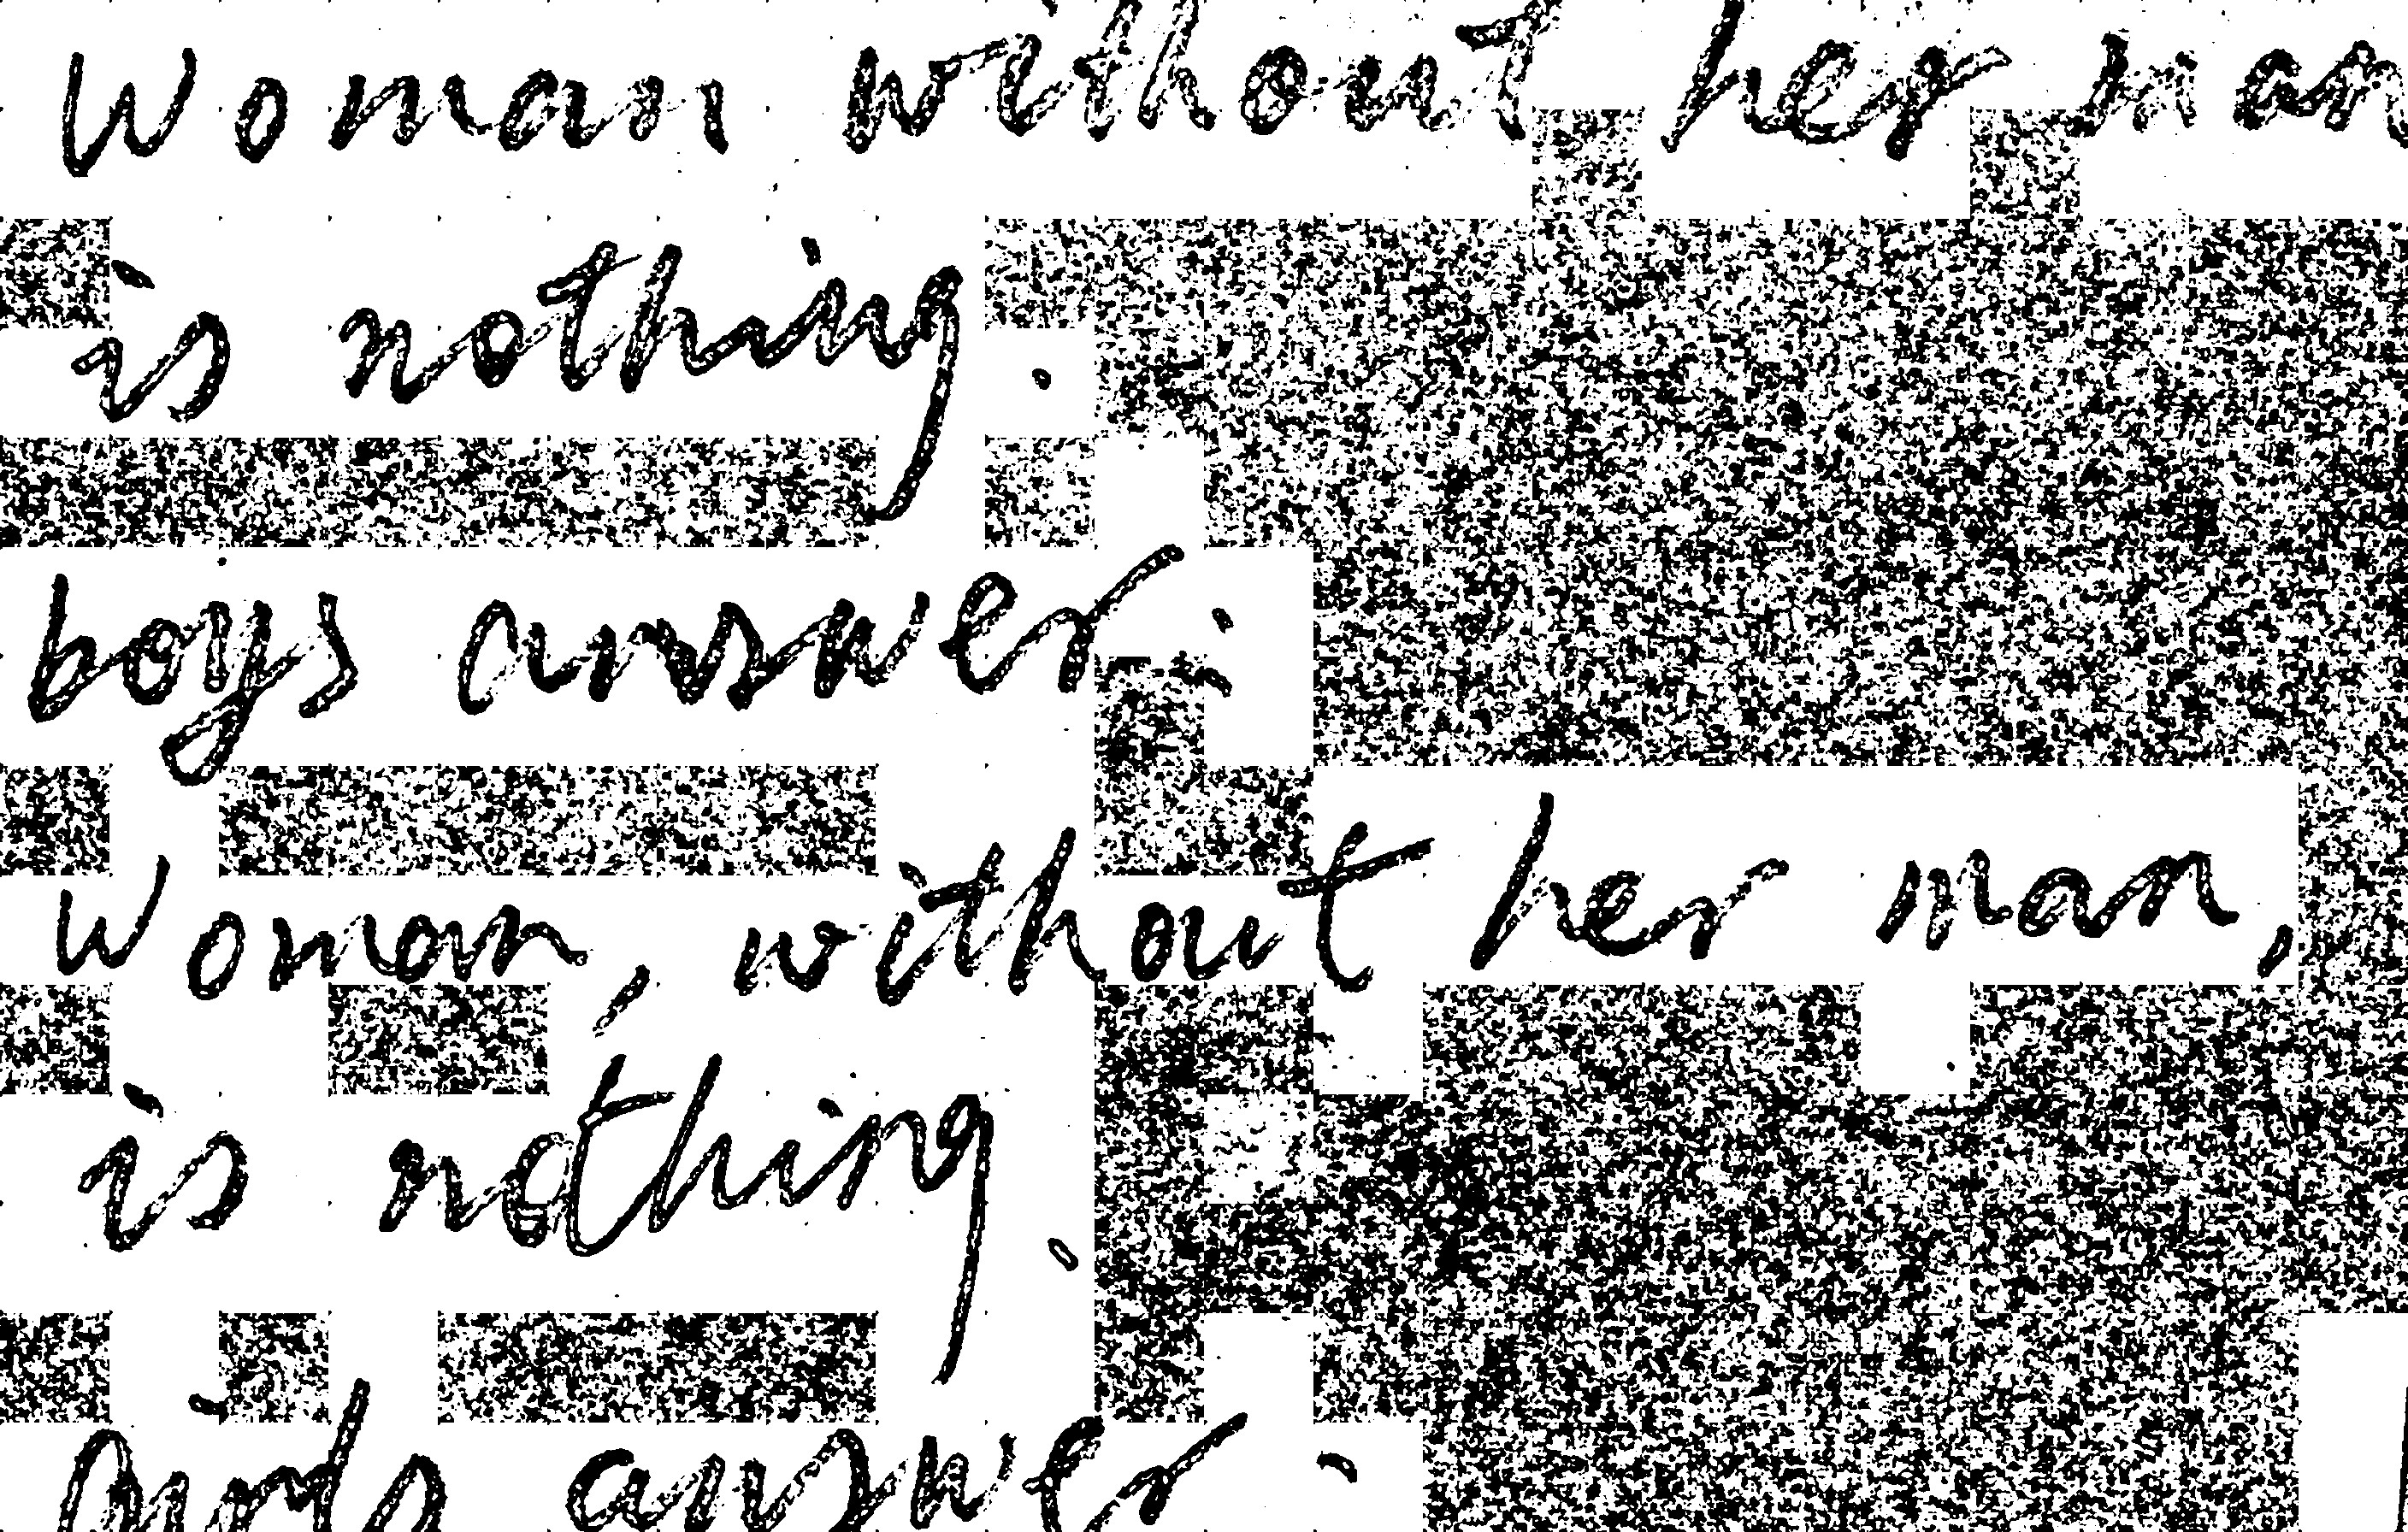 Woman without her man
is nothing.
boys answer:
Woman, without her man,
is nothing.
girls answer: